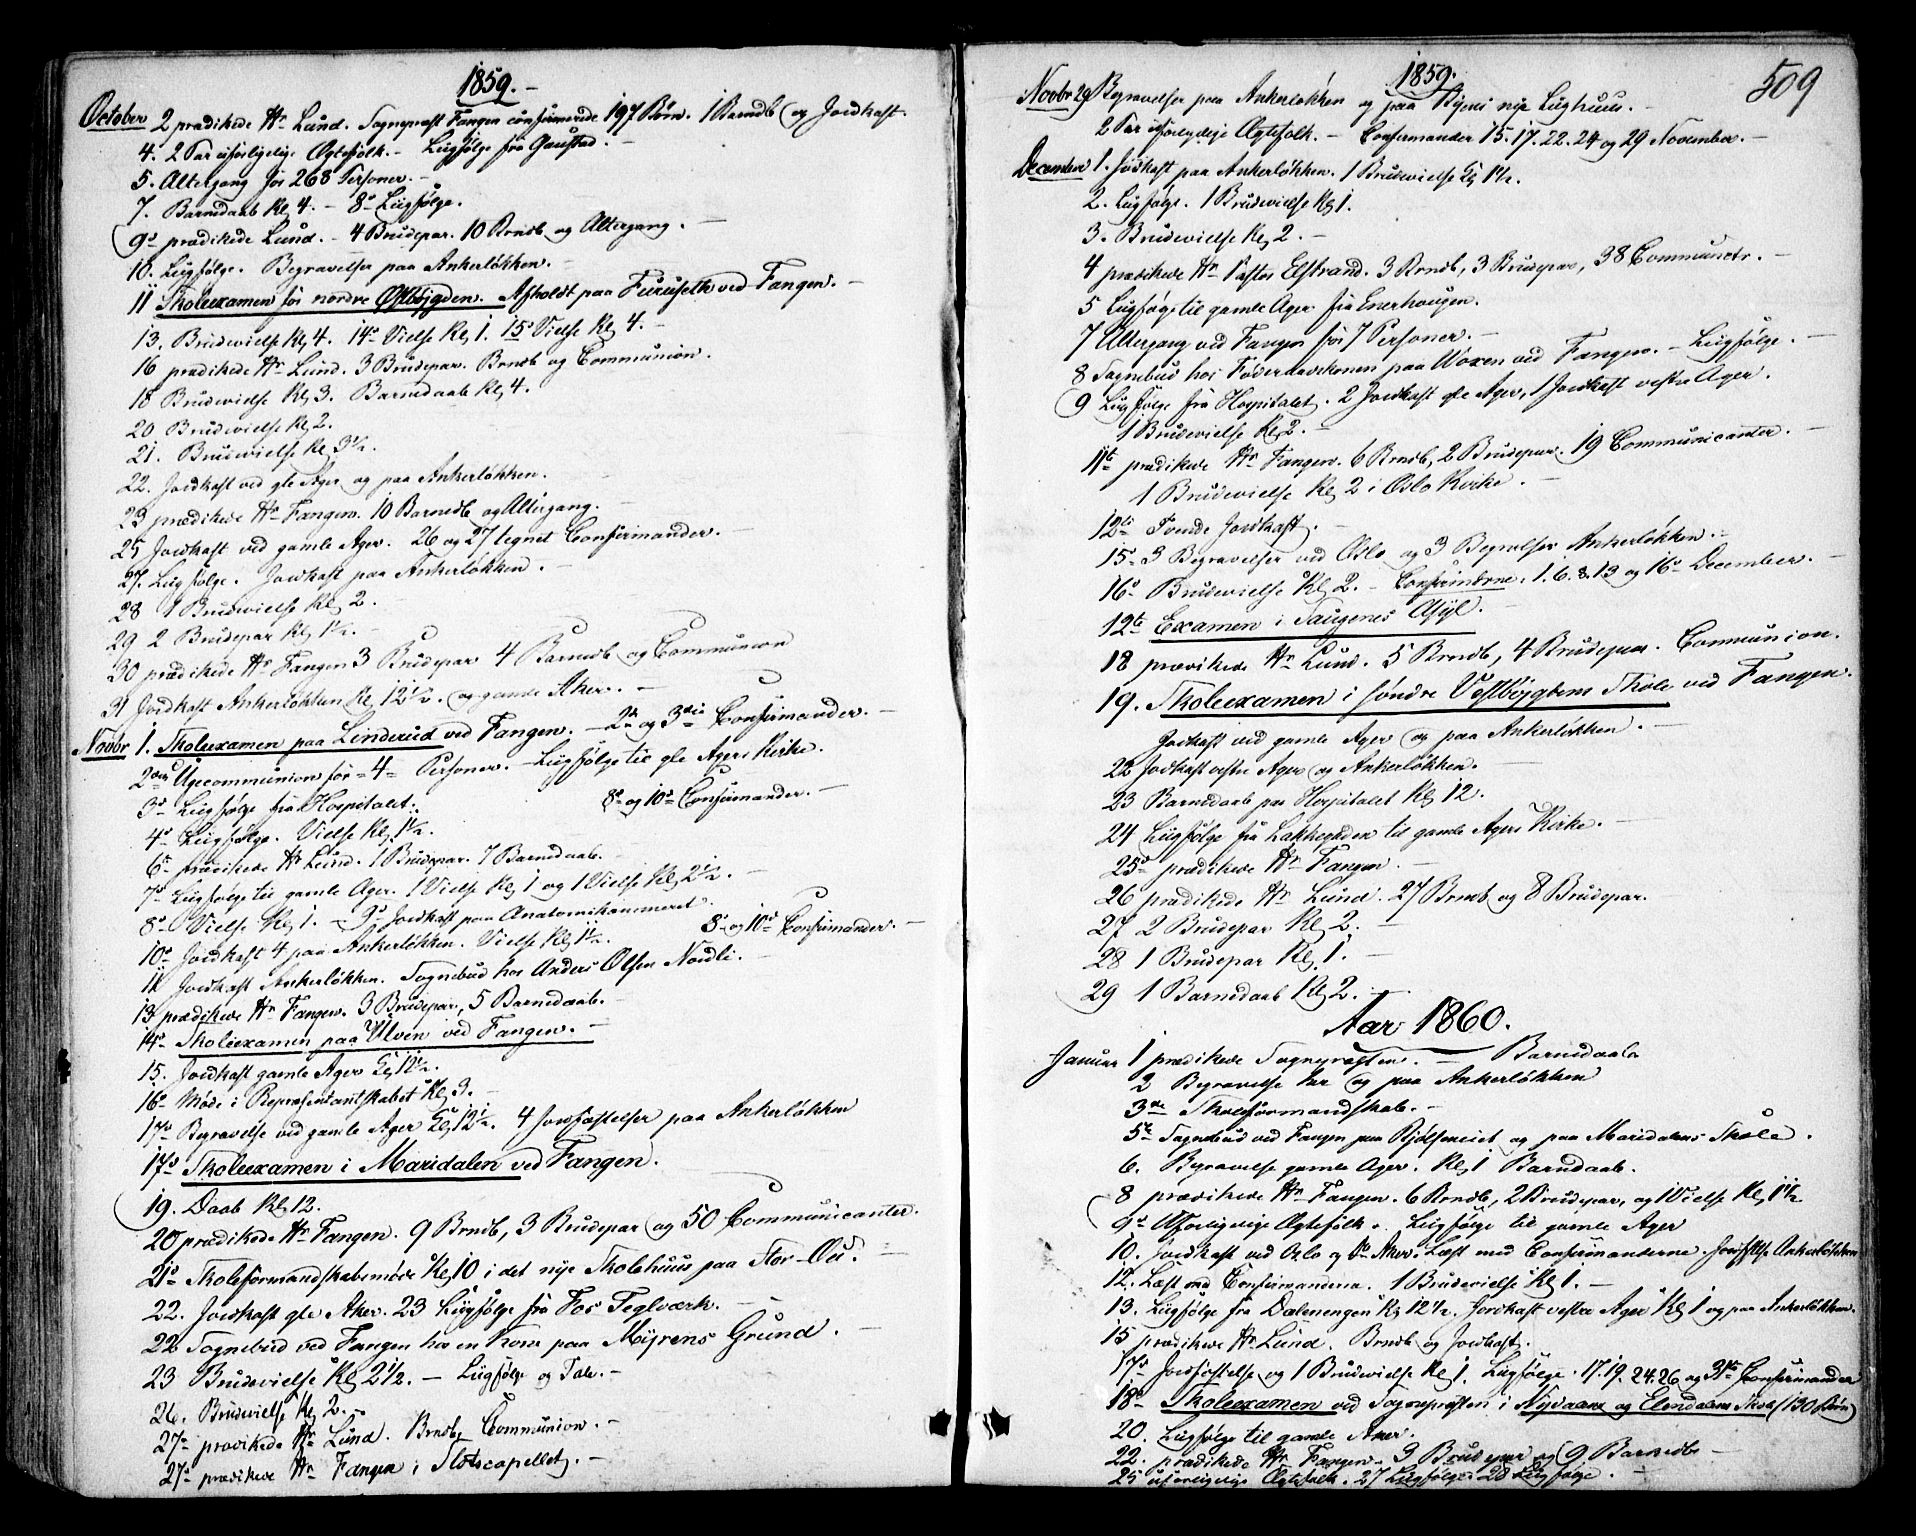 1859.-
October 2 prædikede Hr Lund. Sognepræst Fangen confirmerede 197 Børn. 1 Barndb og Jordkast.
4. 2 Par uforligelige Ægtefolk.- Liigfølge fra Gaustad.-
5. Altergang for 268 Personer.-
7. Barnedaab Kl 4. - 8de Liigfølge.
9de prædikede Lund. - 4 Brudepar. 10 Brndb og Altergang.-
10. Liigfølge. Begravelser paa Ankerløkken.-
11 Skoleexamen for nordre Østbygden. Afholdt paa Furuseth ved Fangen.-
13. Brudevielse Kl 4. 14de Vielse Kl 1. 15de Vielse Kl 4.-
16 prædikede Hr Lund. 3 Brudepar. Brndb og Communion.
18 Brudevielse Kl 3. Barnedaab Kl 4.
20 Brudevielse Kl 2.
21. Brudevielse Kl 3½.
22. Jordkast ved gle Ager og paa Ankerløkken.-
23 prædikede Hr Fangen. 10 Barnedb og Altergang.-
25 Jordkast ved gamle Ager. 26 og 27 tegnet Confirmander.-
27. Liigfølge. Jordkast paa Ankerløkken.-
28 1 Brudevielse Kl 2.-
29 2 Brudepar Kl 1½.-
30 prædikede Hr Fangen 3 Brudepar 4 Barnedb og Communion
31 Jordkast Ankerløkken Kl 12½. og gamle Aker.-
Novbr 1. Skoleexamen paa Linderud ved Fangen. - 2de og 3die Confirmander.-
2den Ugecommunion for =4= Personer. - Liigfølge til gle Agers Kirke.
3de Liigfølge fra Hospitalet. 8de og 10de Confirmander.-
4de Liigfølge. Vielse Kl 1½.
6te prædikede Hr Lund. 1 Brudepar. 7 Barnedaab.
7de Liigfølge til gamle Ager. 1 Vielse Kl 1 og 1 Vielse Kl 2½.-
8de Vielse Kl 1. - 9de Jordkast paa Anatomikammeret.
10de Jordkast 4 paa Ankerløkken. Vielse Kl 1½. 8de og 10de Confirmander.-
11 Jordkast Ankerløkken. Sognebud hos Anders Olsen Nordli.-
13 prædikede Hr Fangen. 3 Brudepar, 5 Barnedaab.
14de Skoleexamen paa Ulven ved Fangen.-
15. Jordkast gamle Ager Kl 12½.
16de Møde i Repræsentantskabet Kl 3.
17de Begravelse ved gamle Ager Kl 12½. 4 Jordfæstelser paa Ankerløkken
17de Skoleexamen i Maridalen ved Fangen.
19. Daab Kl 12.
20 prædikede Hr Fangen. 9 Brndb, 3 Brudepar og 50 Communicanter.
21de Skoleformandskabsmøde Kl 10 i det nye Skolehuus paa Stor-Øu.-
22. Jordkast gle Aker. 23 Liigfølge fra Fos Teglværk.-
22 Sognebud ved Fangen hos en Kone paa Myrens Grund.-
23 Brudevielse Kl 2½. - Liigfølge og Tale.-
26. Brudevielse Kl 2.-
27de prædikede Hr Lund. Brndb, Communion.-
27de prædikede Hr Fangen i Slotscapellet.-
1859. 509
Novbr 29 Begravelser paa Ankerløkken og paa Byens nye Liighuus.-
2 Par uforligelige Ægtefolk.- Confirmander 15. 17. 22. 24 og 29 November.-
December 1. Jordkast paa Ankerløkken. 1 Brudevielse Kl 1½.
2. Liigfølge. 1 Brudevielse Kl 1.
3. Brudevielse Kl 2.-
4 prædikede Hr Pastor Elstrand. 3 Brndb, 3 Brudepar, 38 Communctr.-
5 Liigfølge til gamle Ager fra Enerhougen.
7 Altergang ved Fangen for 7 Personer.-
8 Sognebud hos Føderaadskonen paa Voxen ved Fangen. - Liigfølge.-
9 Liigfølge fra Hospitalet. 2 Jordkast gle Ager, 1 Jordkast vestre Ager.
1 Brudevielse Kl 2.-
11te prædikede Hr Fangen. 6 Brndb, 2 Brudepar. 19 Communicanter.-
1 Brudevielse Kl 2 i Oslo Kirke.-
12te Tvende Jordkast.-
15de 3 Begravelser ved Oslo og 3 Begravelser Ankerløkken.-
16de Brudevielse Kl 2. - Confirmderne. 1. 6. 8. 13 og 16de December.-
12te Examen i Saugenes Asyl.-
18 prædikede Hr Lund. 5 Brndb, 4 Brudepar. Communion.
19. Skoleexamen i søndre Vestbygdens Skole ved Fangen.
Jordkast ved gamle Ager og paa Ankerløkken.-
22 Jordkast vestre Ager og Ankerløkken.
23 Barnedaab paa Hospitalet Kl 12.
24 Liigfølge fra Lakkegaden til gamle Agers Kirke.-
25de prædikede Hr Fangen.-
26 prædikede Hr Lund. 27 Brndb og 8 Brudepar.
27 2 Brudepar Kl 2.-
28 1 Brudepar Kl 1.-
29 1 Barnedaab Kl 2.-
Aar 1860.
Januar 1 prædikede Sognepræsten. - Barnedaab
2 Begravelse her og paa Ankerløkken
3die Skoleformandskab.-
5te Sognebud ved Fangen paa Kjølsmeiet og paa Maridalens Skole.
6. Begravelse gamle Ager. Kl 1 Barndaab.
8 prædikede Hr Fangen. 6 Brndb, 2 Brudepar, og 1 Vielse Kl 1½
9de Uforligelige Ægtefolk. Liigfølge til gamle Ager
10. Jordkast ved Oslo og gle Aker. Læst med Confirmanderne. Jordfstlse Ankerløkken
12. Læst med Confirmanderna. 1 Brudevielse Kl 1.-
13. Liigfølge fra Dælenengen Kl 12½. Jordkast vestre Ager Kl 1 og paa Ankerløkken.
15 prædikede Hr Lund. Brndb og Jordkast.
17de Jordfæstelse og 1 Brudevielse Kl 1. Liigfølge. 17. 19. 24. 26 og 31te Confirmander
18de Skoleexamen ved Sognepræsten i Nydalens og Elendalens Skole (130 Børn)
20. Liigfølge til gamle Aker.
22. prædikede Hr Fangen. 3 Brudepar og 9 Barnedb-
25 uforligelige Ægtefolk. 27 Liigfølge. 28 Liigfølge.-